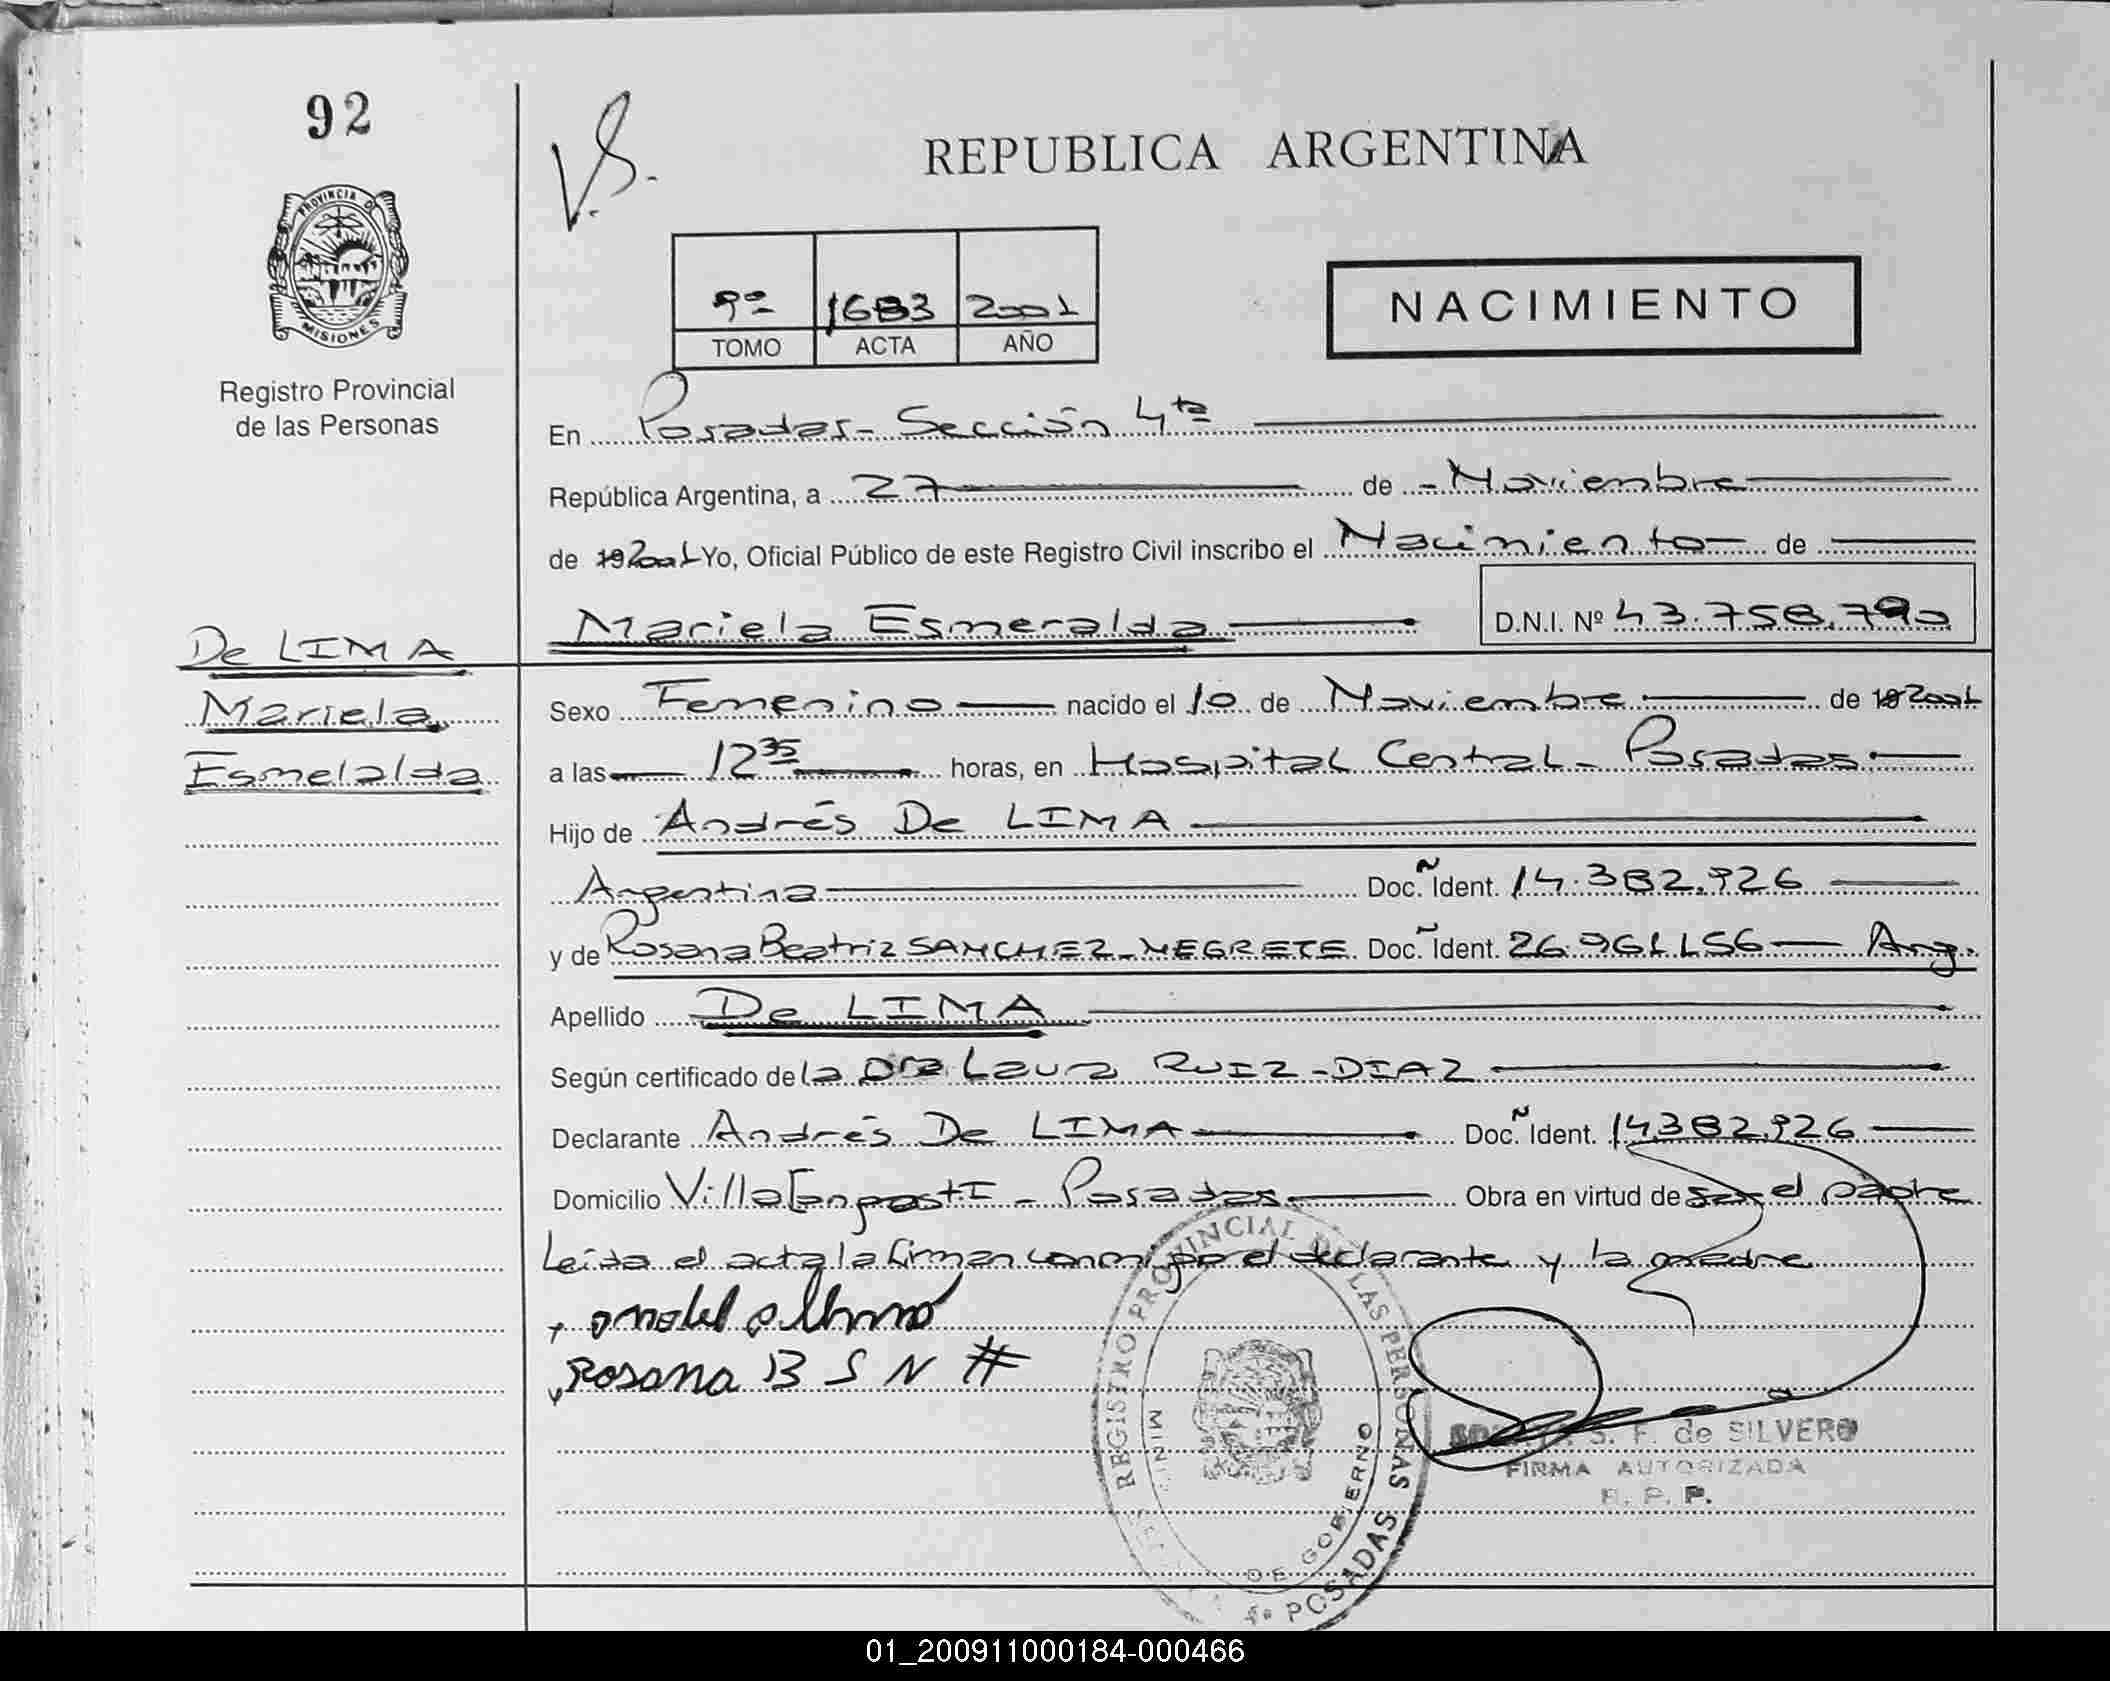 92
V.S.
REPUBLICA ARGENTINA
PROVINCIA DE
MISIONES
9º 1683 2001
TOMO ACTA AÑO
NACIMIENTO
Registro Provincial
de las Personas
En Posadas - Sección 4ta
República Argentina, a 27 de - Noviembre
de 19 2001 Yo, Oficial Público de este Registro Civil inscribo el Nacimiento de
Mariela Esmeralda D.N.I. Nº 43.758.790
De LIMA
Mariela
Esmelalda
Sexo Femenino nacido el 10 de Noviembre de 19 2001
a las 12 35 horas, en Hospital Central - Posadas
Hijo de Andrés De LIMA
Argentina Doc. Ident. 14.382.926
y de Rosana Beatriz SANCHEZ-NEGRETE Doc. Ident. 26.961.156 Arg.
Apellido De LIMA
Según certificado de la Dra. Laura RUIZ-DIAZ
Declarante Andrés De LIMA Doc. Ident. 14.382.926
Domicilio Villa - Posadas Obra en virtud de ser el padre
Leída el acta la firman conmigo el declarante y la madre
Rosana B S N
REGISTRO PROVINCIAL DE LAS PERSONAS
DE GOBIERNO
POSADAS
S. F. de SILVERO
FIRMA AUTORIZADA
R. P. P.
01_200911000184-000466